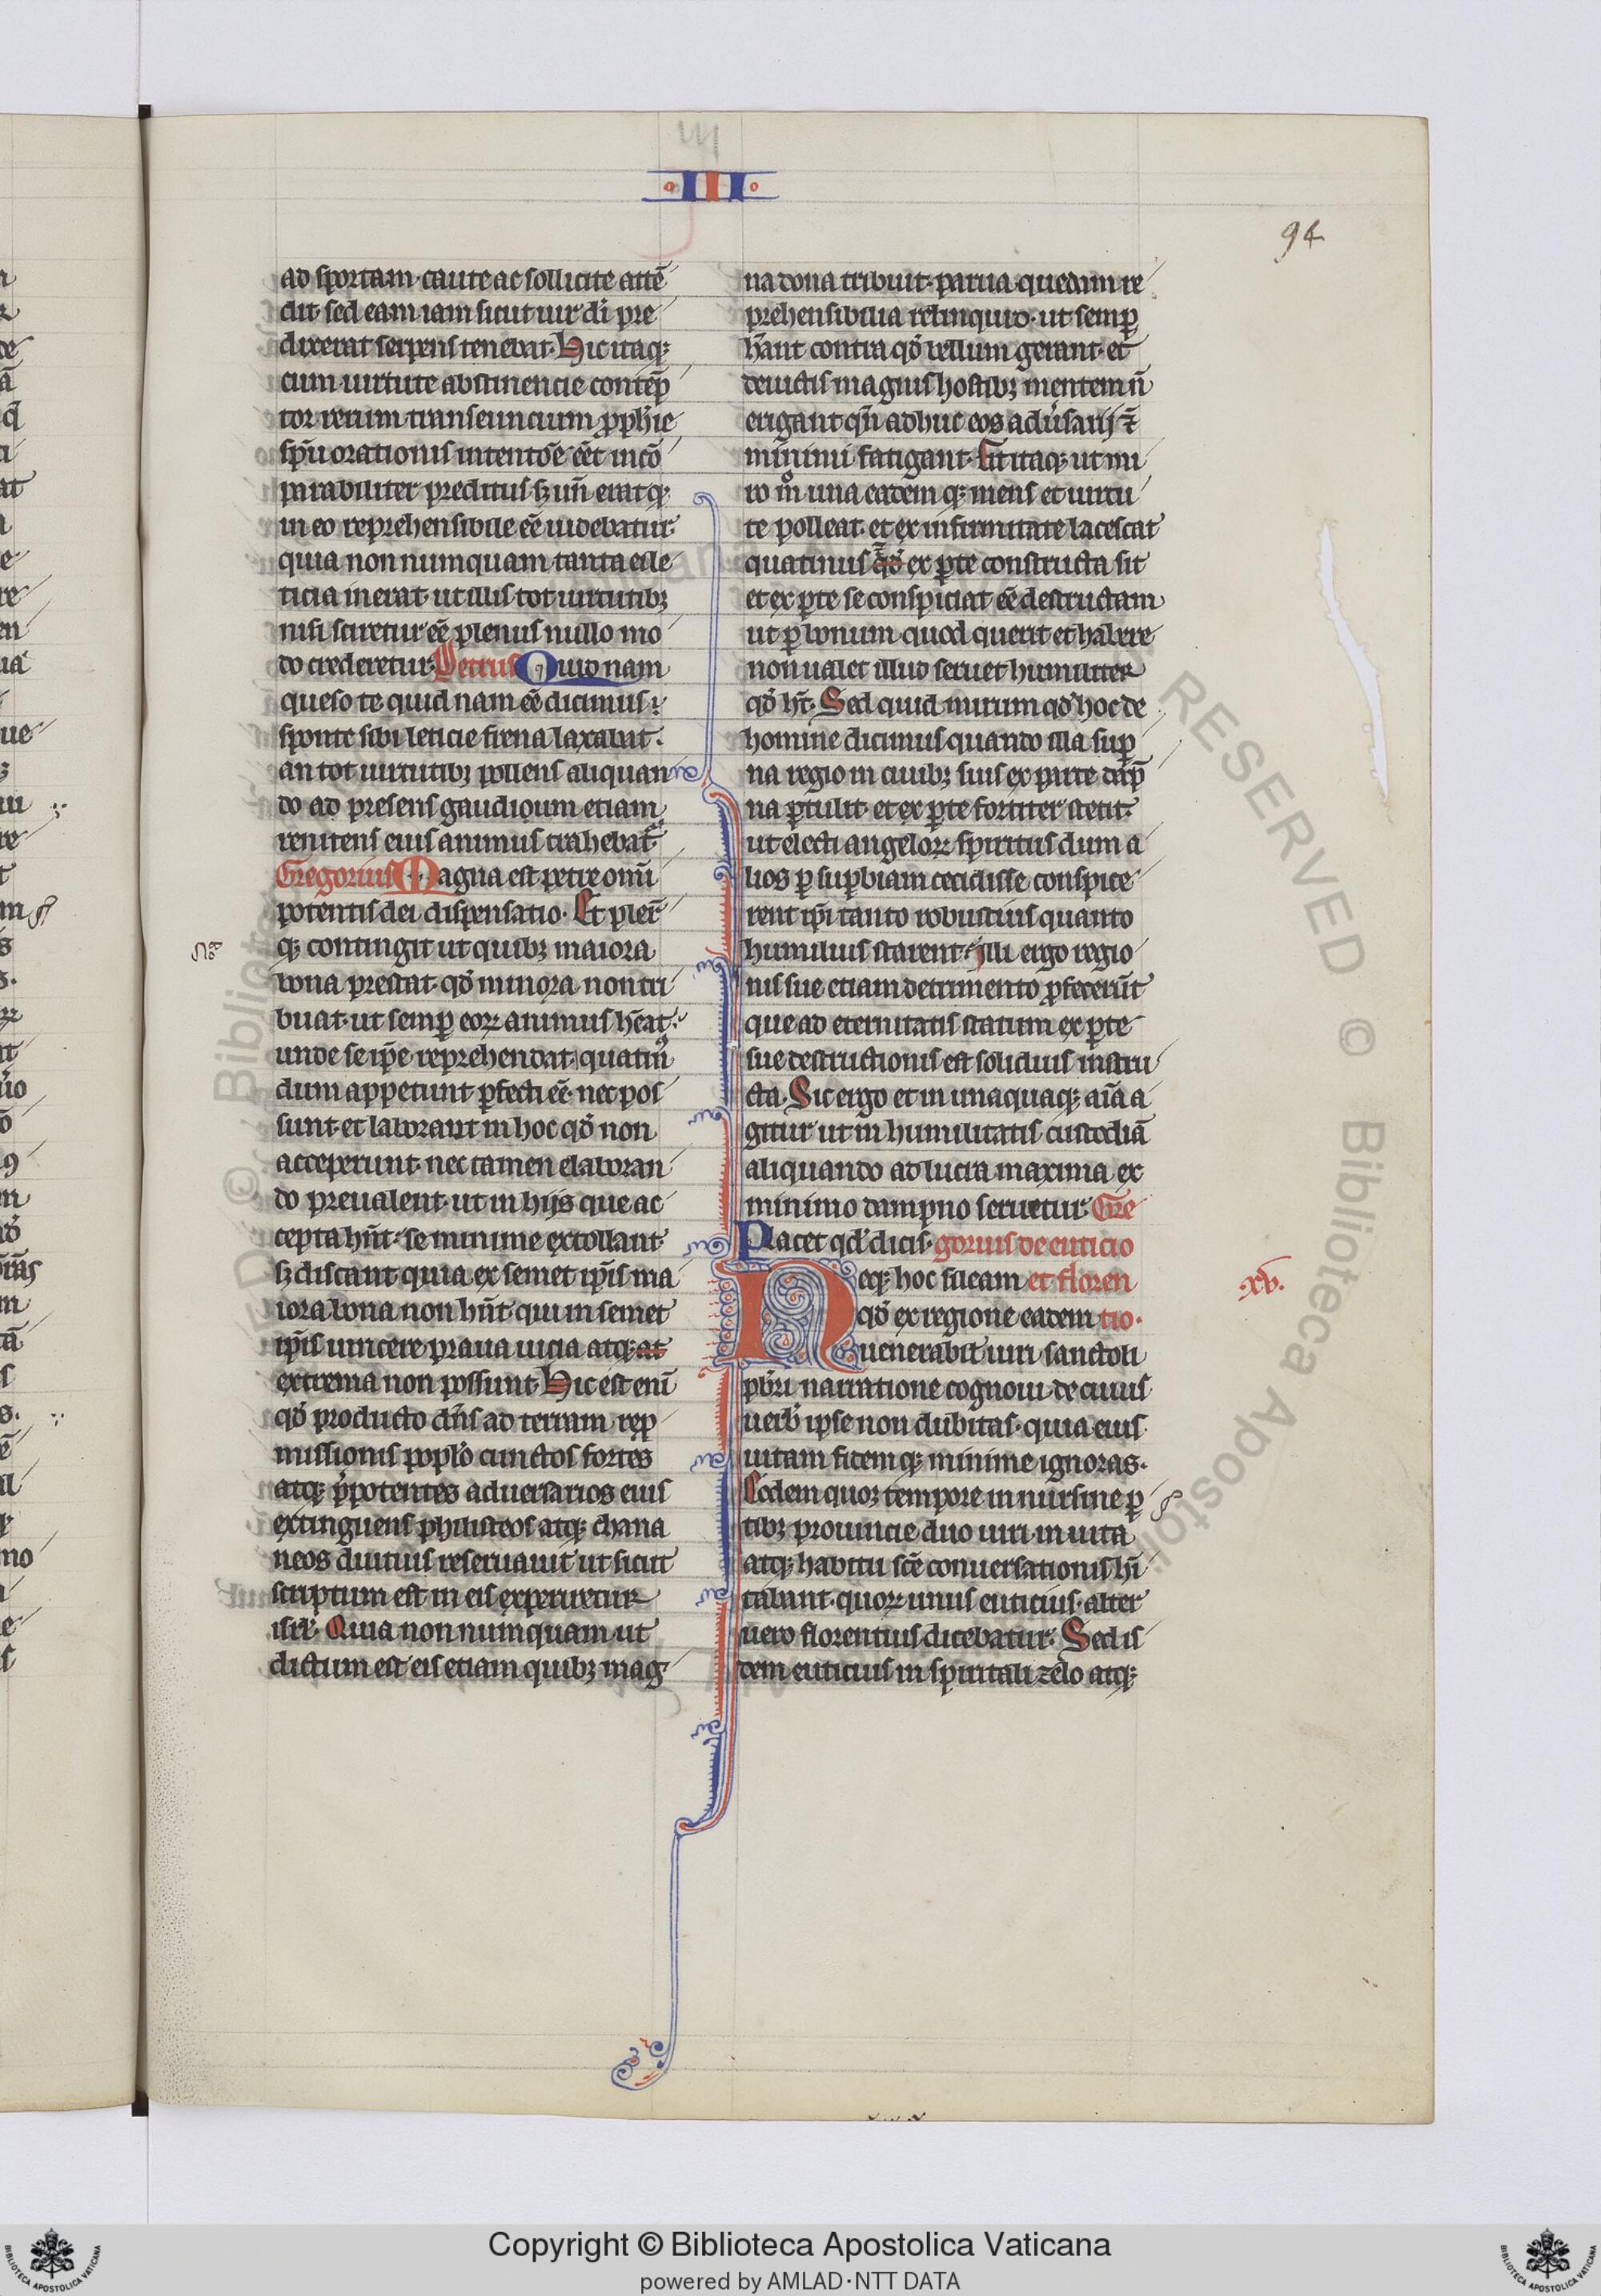 III
94
ad sportam· caute ac sollicite attē
dit· sed eam iam sicut uir dī pre
dixerat serpens tenebat· Hic itaq;
cum uirtute abstinencie contēp
tor rerum transeuncium ꝓph̄ie
sp̄u orationis intentōe eēt incō
parabiliter preditus· sꝫ un̄ erat q;
in eo reprehensibile eē uidebatur·
quia non numquam tanta ei le
ticia inerat· ut illis tot uirtutibꝫ
nisi sciretur eē plenus nullo mo
do crederetur· Petrus Quid nam
queso te quid nam eē dicimus?
sponte sibi leticie frena laxabat·
an tot uirtutibꝫ pollens aliquan
do ad presens gaudium etiam
renitens eius animus trahebat᷑·
Gregorius Magna est petre omī
potentis dei dispensatio· Et pler̄
q; contingit ut quibꝫ maiora
bona prestat· qd̄ minora non tri
buat· ut semꝑ eoꝝ animus h̄eat·
unde se ip̄e reprehendat· quatin᷒
dum appetunt ꝑfecti eē· nec pos
sunt· et laborant in hoc qd̄ non
acceperunt· nec tamen elaboran
do preualent· ut in hijs que ac
cepta hn̄t· se minime extollant·
sꝫ discant quia ex semet ip̄is ma
iora bona non hn̄t· qui in semet
ip̄is uincere praua uicia atq; at
extrema non possunt· Hic est enī
qd̄ producto dn̄s ad terram rep
missionis pop̄lo cunctos fortes
atq; p̄potentes aduersarios eius
extinguens· philisteos atq; chana
neos diutius reseruauit· ut sicut
scriptum est in eis experiretur
isr̄l· Quia non numquam ut
dictum est eis etiam quibꝫ mag
na dona tribuit· parua quedam re
prehensibilia relinquid· ut semꝑ
h̄ant contra qd̄ bellum gerant· et
deuictis magnis hostibꝫ mentem n̄
erigant· qn̄ adhuc eos adūsarij ⁊
minimi fatigant· Fit itaq; ut mi
ro m̊ una eadem q; mens et uirtu
te polleat· et ex infirmitate lacescat
quatinus qd̄ ex ꝑte constructa sit
et ex ꝑte se conspiciat eē destructam
ut ꝑ bonum quod querit et habere
non ualet illud seruet humiliter
qd̄ ht̄· Sed quid mirum qd̄ hoc de
homine dicimus quando illa suꝑ
na regio in ciuibꝫ suis ex parte dāp
na ꝑtulit· et ex ꝑte fortiter stetit·
ut electi angeloꝝ spiritus dum a
lios ꝑ suꝑbiam cecidisse conspice
rent ip̄i tanto robustius quanto
humilius starent· Illi ergo regio
nis sue etiam detrimento ꝓfecerūt
que ad eternitatis statum ex ꝑte
sue destructionis est solidius instru
cta· Sic ergo et in unaquaq; aīa a
gitur ut in humilitatis custodiā
aliquando ad lucra maxima ex
minimo dampno seruetur· Gre
Placet qd̄ dicis· gorius de euticio
Neq; hoc sileam et floren
qd̄ ex regione eadem tio·
uenerabil̄ uiri sanctoli
pb̄ri narratione cognoui· de cuius
uerb̄ ipse non dubitas· quia eius
uitam fidem q; minime ignoras·
Eodem quoꝫ tempore in nursine ꝑ
tibꝫ prouincie duo uiri in uita
atq; habitu scē conuersationis hī
tabant· quoꝝ unus euticius· alter
uero florentius dicebatur· Sed is
dem euticius in spiritali zelo atq;
·xv·
Copyright © Biblioteca Apostolica Vaticana
powered by AMLAD·NTT DATA